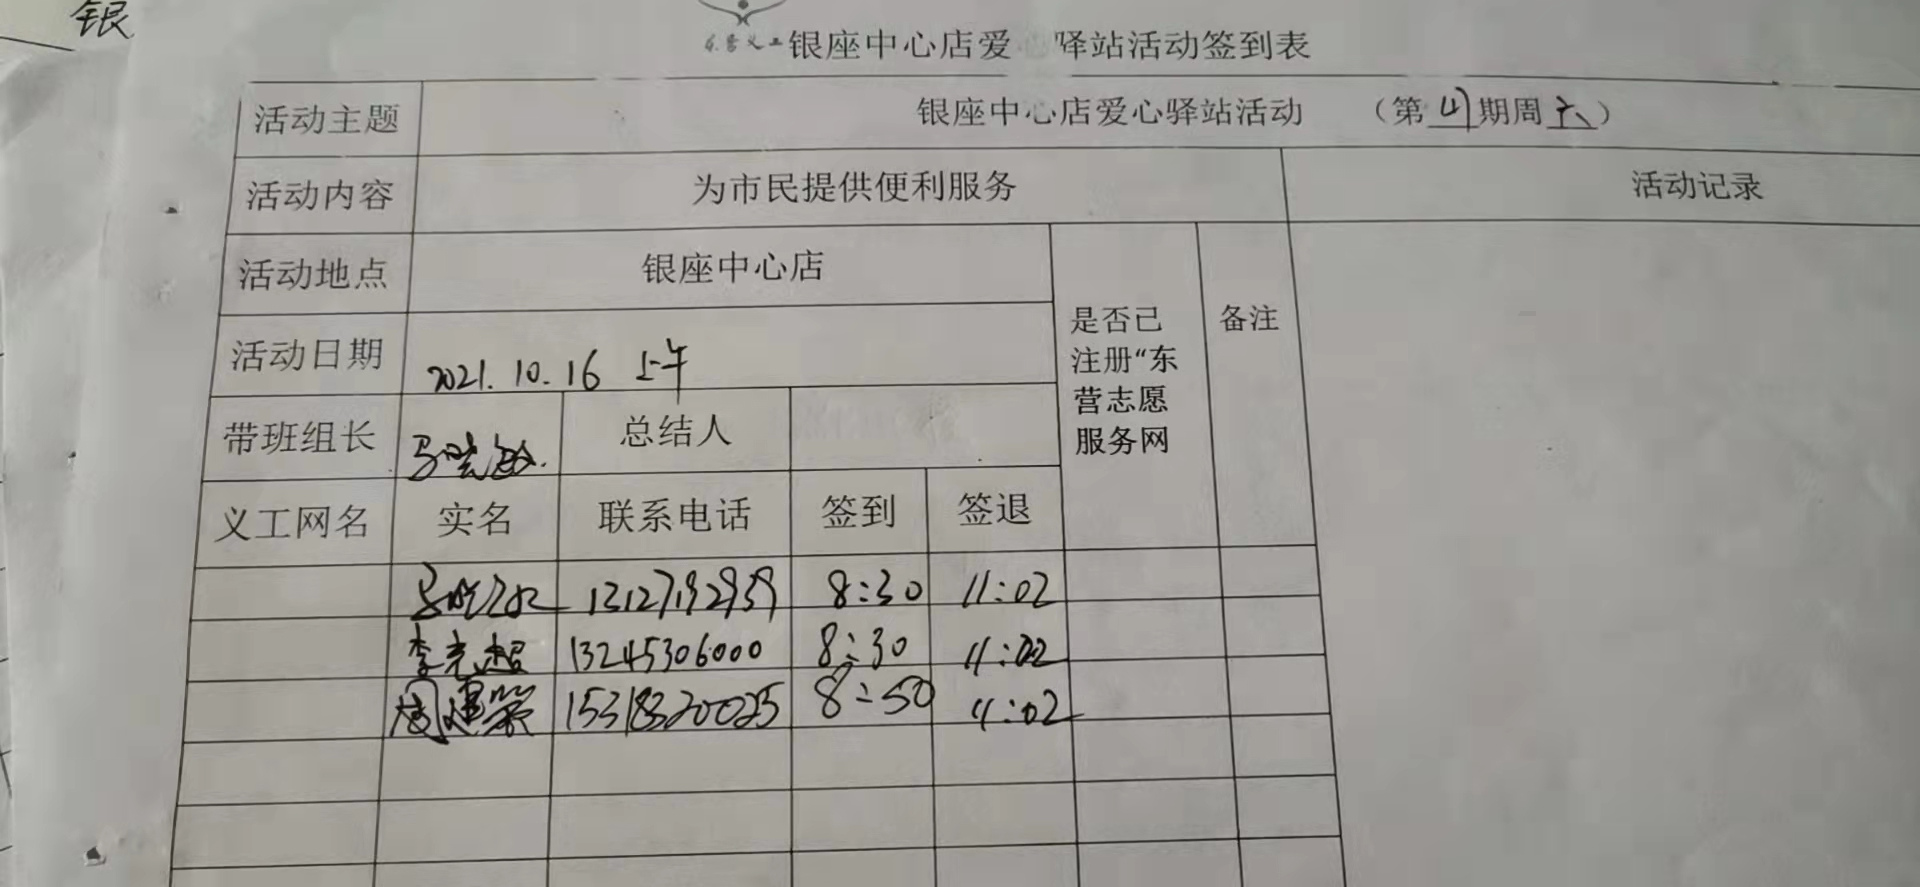 银
东营义工 银座中心店爱心驿站活动签到表
活动主题 银座中心店爱心驿站活动 （第四期周六）
活动内容 为市民提供便利服务 活动记录
活动地点 银座中心店
是否已注册“东营志愿服务网 备注
活动日期 2021.10.16 上午
带班组长 总结人
义工网名 实名 联系电话 签到 签退
8:30 11:02
李光超 13245306000 8:30 11:02
15318320025 8:50 11:02